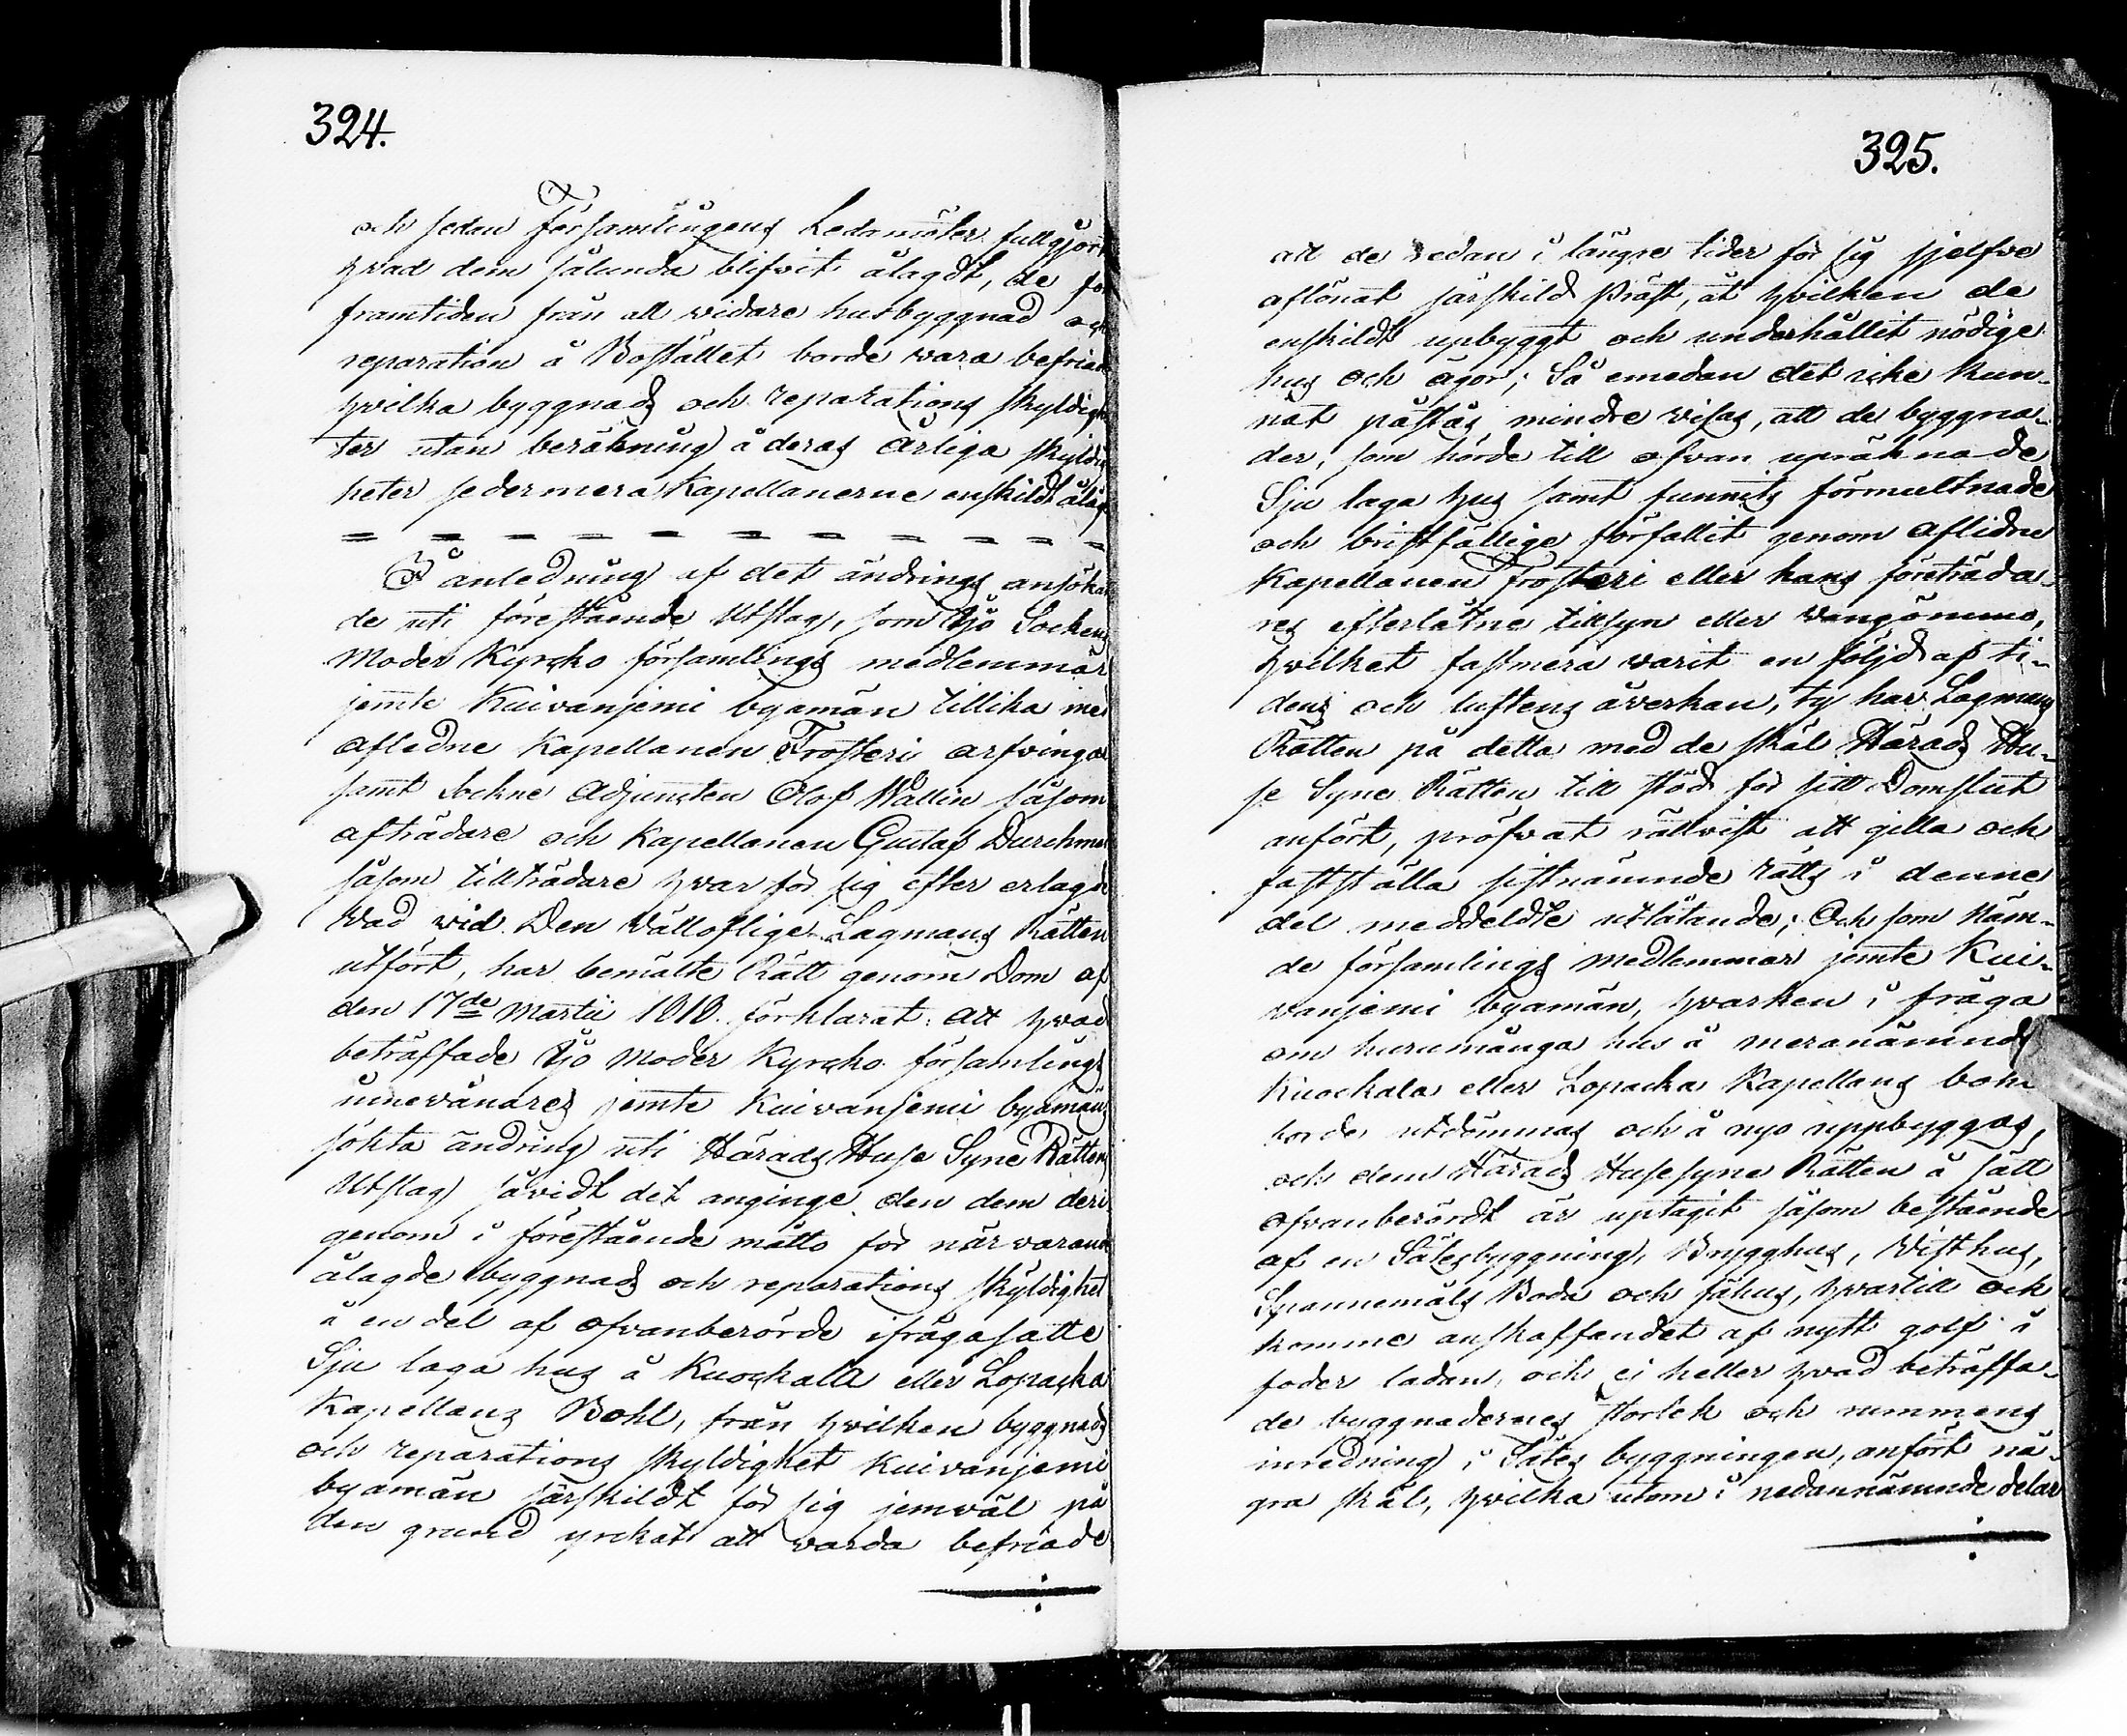 324.
och sedan Församlingens Ledamöter fullgjort
hvad dem sålunda blifvit ålagdt, de för
framtiden från all widare husbyggnad och
reparation å Bostället borde wara befriade
hvilka byggnads och reparations skyldighe
ter utan beräkning å deras årliga skyldig
heter sedermera Kapellanerne enskildt ålåge
= = = = = = = = = = =
I anledning af det ändrings ansökan
de uti förestående Utslag, som Ijo Sockens
Moder Kyrcko församlings medlemmar
jemte Kuivanjemi byamän tillika med
afledne Kapellanen Frosteri arfvingar
samt Sockne Adjuncten Olof Wallin såsom
afträdare och Kapellanen Gustaf Durchman
såsom tillträdare hvar för sig efter erlagdt
Wad wid Den Välloflige Lagmans Rätten
utfört, har bemälte Rätt genom Dom af
den 17de Martii 1818. förklarat: att hvad
beträffade Ijo Moder Kyrcko församlings
innevånares jemte Kuivanjemi byamäns
sökta ändring uti Härads Huse Syne Rättens
Utslag såvidt det anginge den dem deri
genom i förestående måtto för närvarande
ålagde byggnads och reparations skyldighet
å en del af ofvanberörde ifrågasatte
Sju laga hus å Kuockala eller Lopacka
Kapellans Bohl, från hvilken byggnads
och reparations skyldighet Kuivanjemi
byamän särskildt för sig jemväl på
den grund yrckat att warda befriade
325.
att de redan i längre tider för sig sjelfve
aflönat särskild Präst, åt hvilken de
enskildt upbyggt och underhållit nödige
hus och ägor; Så emedan det icke kun-
nat påstås mindre visas, att de byggna-
der, som hörde till ofvan uppräknade
Sju laga hus samt funnits förmultnade
och bristfällige förfallit genom aflidne
Kapellanen Frosteri eller hans företräda-
res efterlåtne tillsyn eller wangömmo,
hvilket fastmera warit en följd af ti-
dens och luftens åverkan, ty har Lagmans
Rätten på detta med de skäl Härads Hu-
se Syne Rätten till stöd för sitt Domslut
anfört, pröfvat rättvist att gilla och
fastställa sistnämnde Rätts i denne
del meddeldte utlåtande; Och som näm-
de församlings medlemmar jemte Kui-
vanjemi byamän, hvarken i fråga
om huru många hus å meranämnde
Kuockala eller Lopacka Kapellans bohl
borde utdömmas och å nyo uppbyggas,
och dem Härads Husesyne Rätten å sätt
ofvanberördt är uptagit såsom bestående
af en Sätesbyggning, Brygghus, Visthus,
Spannemåls Boda och fähus, hvartill ock
komme anskaffandet af nytt golf å
foder ladan, och ej heller hvad beträffa-
de byggnadernes storlek och rummens
inredning i Sätes byggningen, anfört nå-
gra skäl, hvilka utom i nedannämnde delar